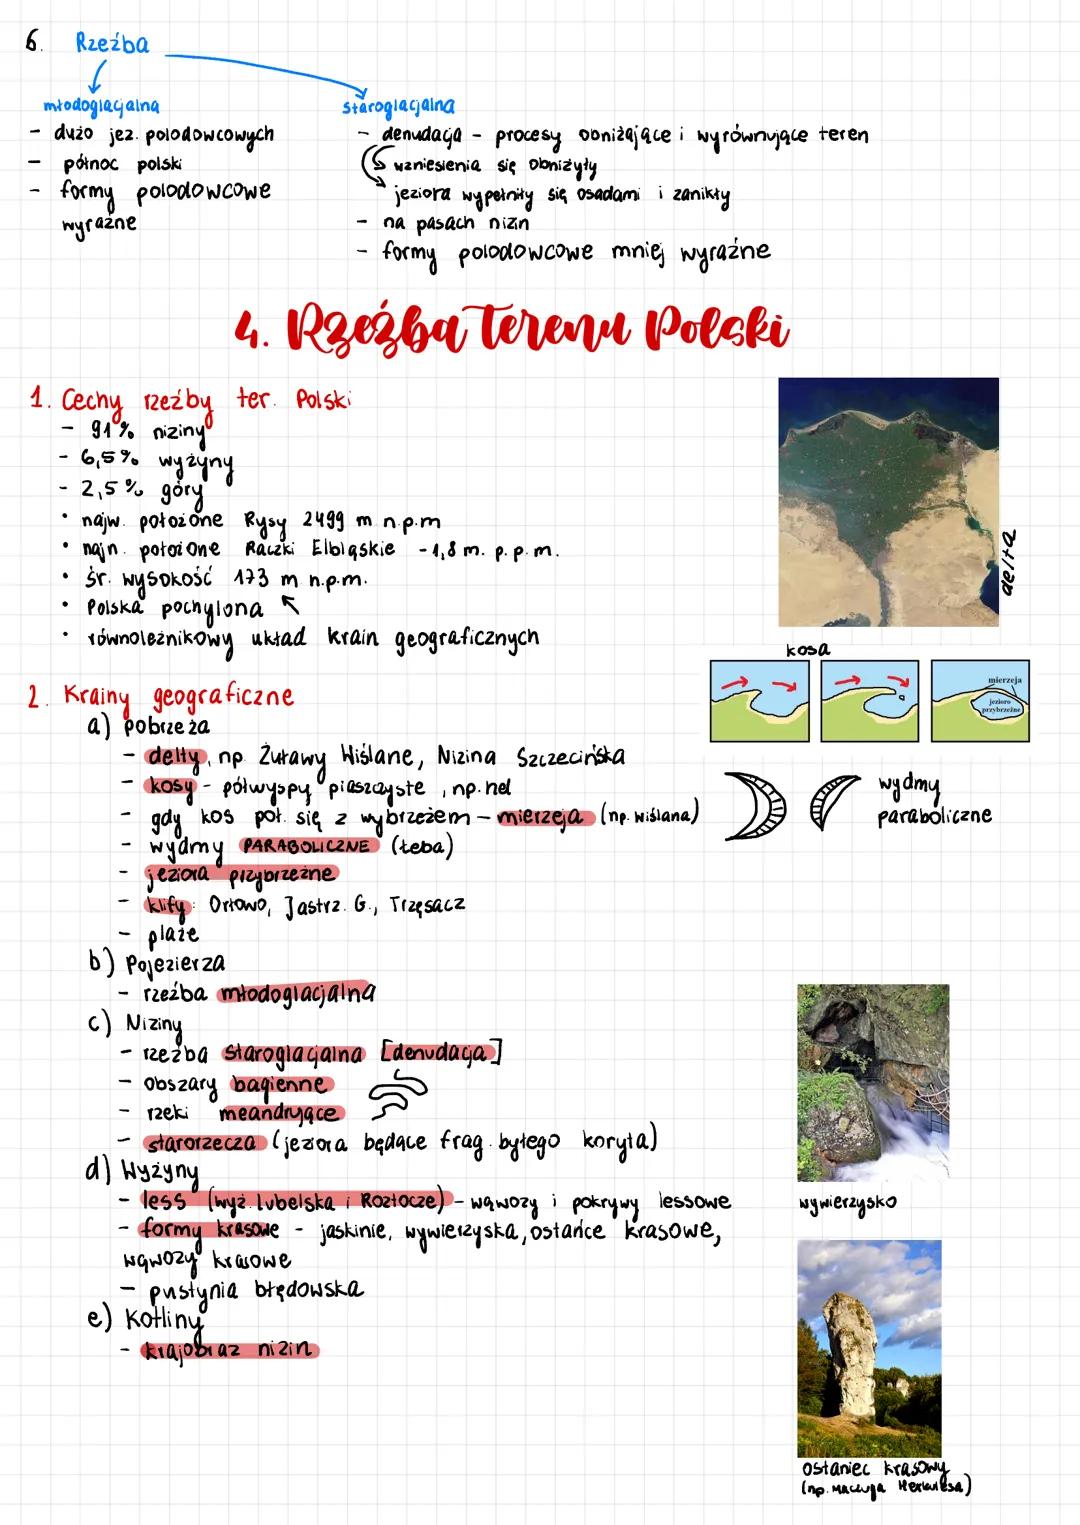 6. Rzeźba
młodoglacjalna
- dużo jez. polodowcowych
- północ polski
- formy polodowcowe
wyraźne
staroglacjalna
- denudacja - procesy obniżające i wyrównujące teren
wzniesienia się obniżyły
jeziora wypełniły się osadami i zanikły
- na pasach nizin
- formy polodowcowe mniej wyraźne
4. Rzeźba terenu Polski
1. Cechy rzeźby ter. Polski
- 91% niziny
- 6,5% wyżyny
- 2,5% góry
• najw. położone Rysy 2499 m n.p.m
• najn. położone Raczki Elbląskie -1,8 m. p.p.m.
• śr. wysokość 173 m n.p.m.
• Polska pochylona ↖
• równoleżnikowy układ krain geograficznych
delta
kosa
mierzeja
jezioro
przybrzeżne
2. Krainy geograficzne
a) pobrzeża
- delty, np. Żuławy Wiślane, Nizina Szczecińska
- kosy - półwyspy piaszczyste, np. hel
- gdy kos poł. się z wybrzeżem - mierzeja (np. wiślana)
- wydmy PARABOLICZNE (łeba)
- jeziora przybrzeżne
- klify: Orłowo, Jastrz. G., Trzęsacz
- plaże
wydmy
paraboliczne
b) Pojezierza
- rzeźba młodoglacjalna
c) Niziny
- rzeźba staroglacjalna [denudacja]
- obszary bagienne
- rzeki meandrujące
- starorzecza (jeziora będące frag. byłego koryta)
d) Wyżyny
- less (wyż. lubelska i Roztocze) - wąwozy i pokrywy lessowe
- formy krasowe - jaskinie, wywierzyska, ostańce krasowe,
wąwozy krasowe
- pustynia błędowska
e) Kotliny
- krajobraz nizin
wywierzysko
ostaniec krasowy
(np. Maczuga Herkulesa)